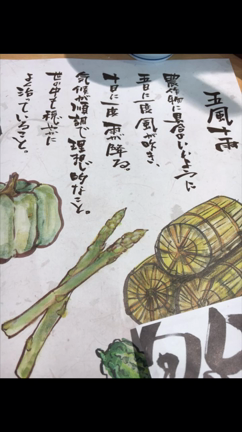 五風十雨
農作物に具合のいいように
五日に一度風が吹き、
十日に一度雨が降る。
気候が順調で理想的なこと。
世の中も穏やかに
よく治っていること。
旬